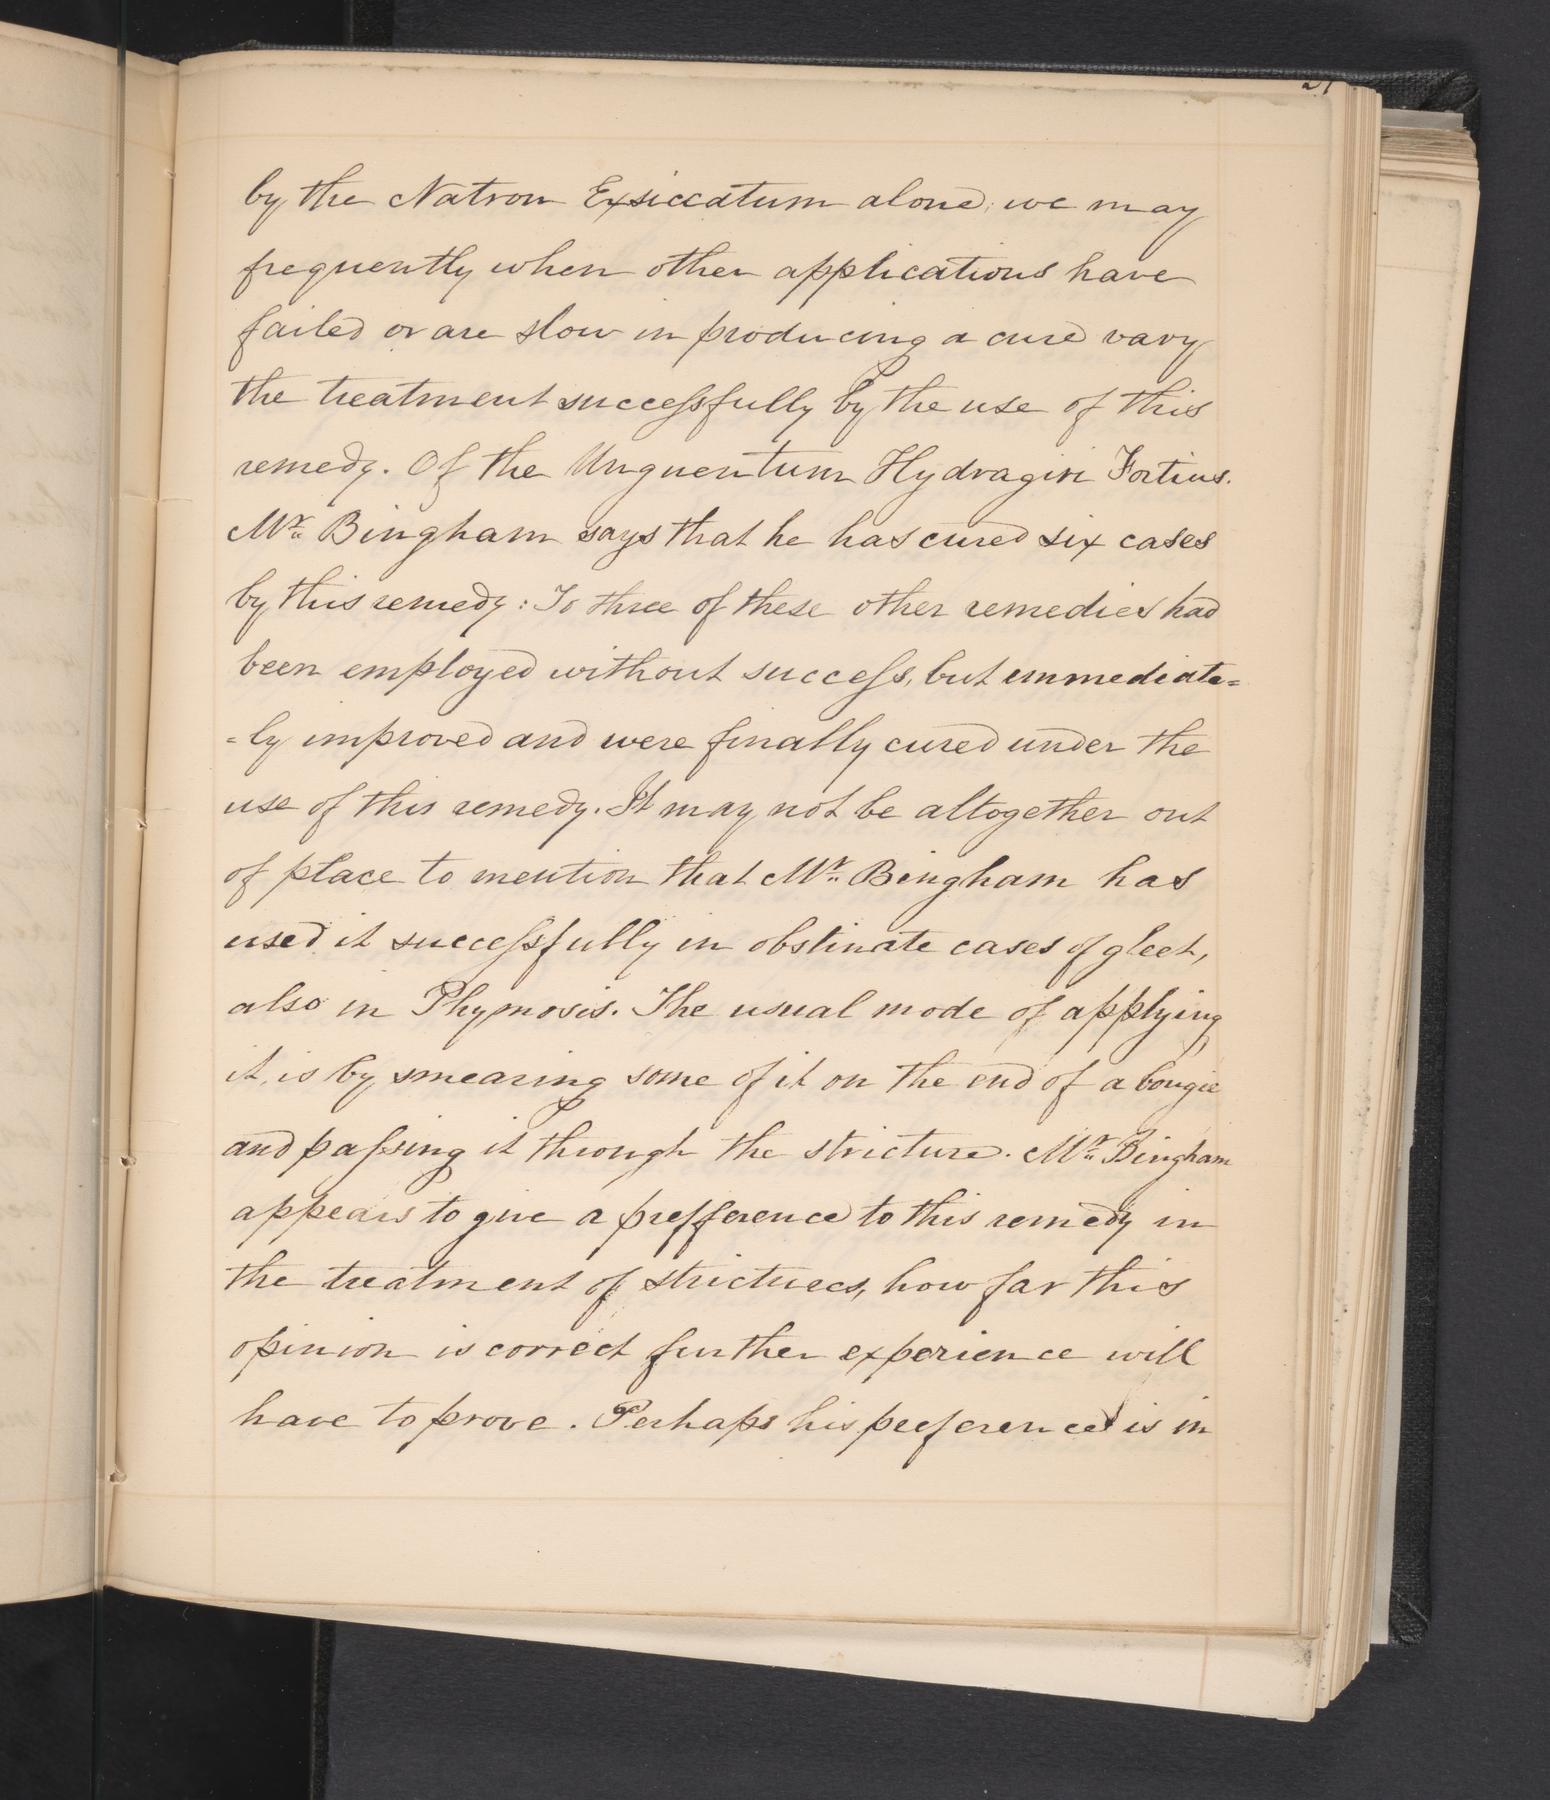 by the Natron Exsiccatum alone; we may
frequently when other applications have
failed or are slow in producing a cure vary
the treatment successfully by the use of this
remedy. Of the Unguentum Hydragiri Fortius.
Mr. Bingham says that he has cured six cases
by this remedy: To three of these other remedies had
been employed without success, but immediate=
=ly improved and were finally cured under the
use of this remedy. It may not be altogether out
of place to mention that Mr. Bingham has
used it successfully in obstinate cases of gleet,
also in Phymosis. The usual mode of applying
it, is by smearing some of it on the end of a bougie
and passing it through the stricture. Mr. Bingham
appears to give a prefference to this remedy in
the treatment of strictures, how far this
opinion is correct further experience will
have to prove. Perhaps his preference is in